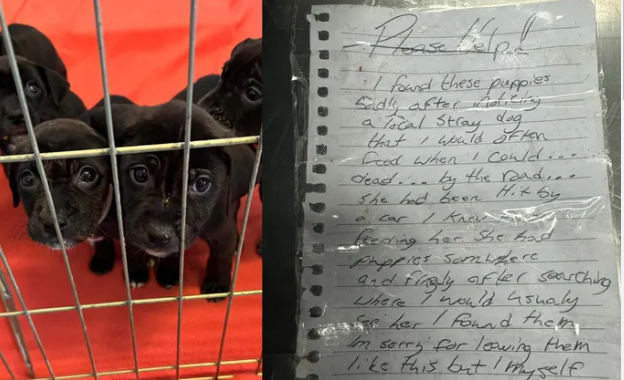 Please Help!!
I found these puppies
sadly after noticing
a local stray dog
that I would often
feed when I could...
dead... by the road...
she had been Hit by
a car I knew
feeding her she had
puppies somwhere
and finaly after searching
where I would usualy
see her I found them
Im sorry for leaving them
like this but I myself